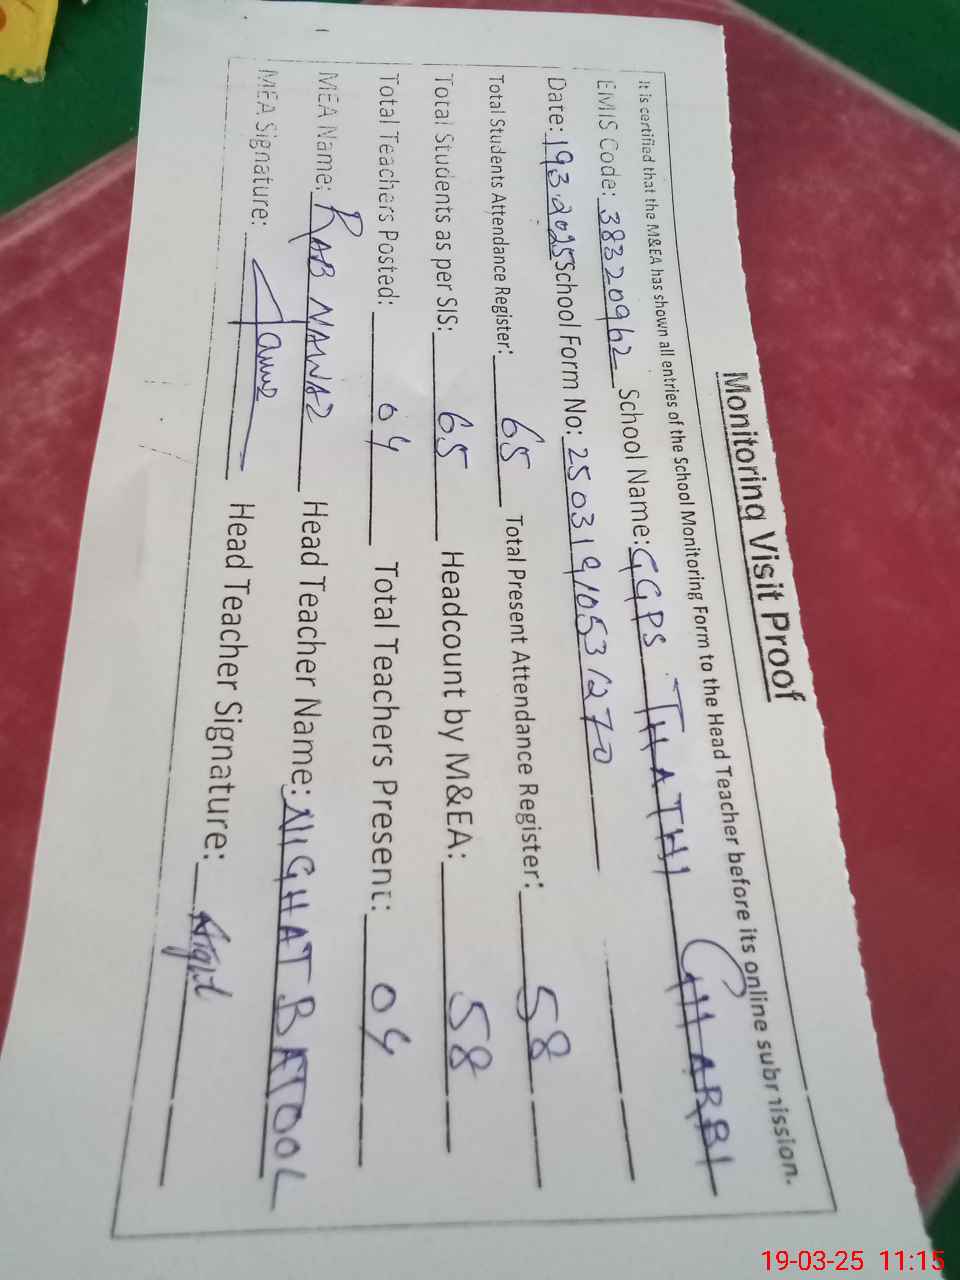 Monitoring Visit Proof
It is certified that the M&EA has shown all entries of the School Monitoring Form to the Head Teacher before its online submission.
EMIS Code: 38320962 School Name: GGPS THATHI GHARBI
Date: 19 3.2025 School Form No: 25031910531270
Total Students Attendance Register: 65 Total Present Attendance Register: 58
Total Students as per SIS: 65 Headcount by M&EA: 58
Total Teachers Posted: 04 Total Teachers Present: 04
MEA Name: RAB NAWAZ Head Teacher Name: NIGHAT BATOOL
MEA Signature: Head Teacher Signature:
19-03-25 11:15